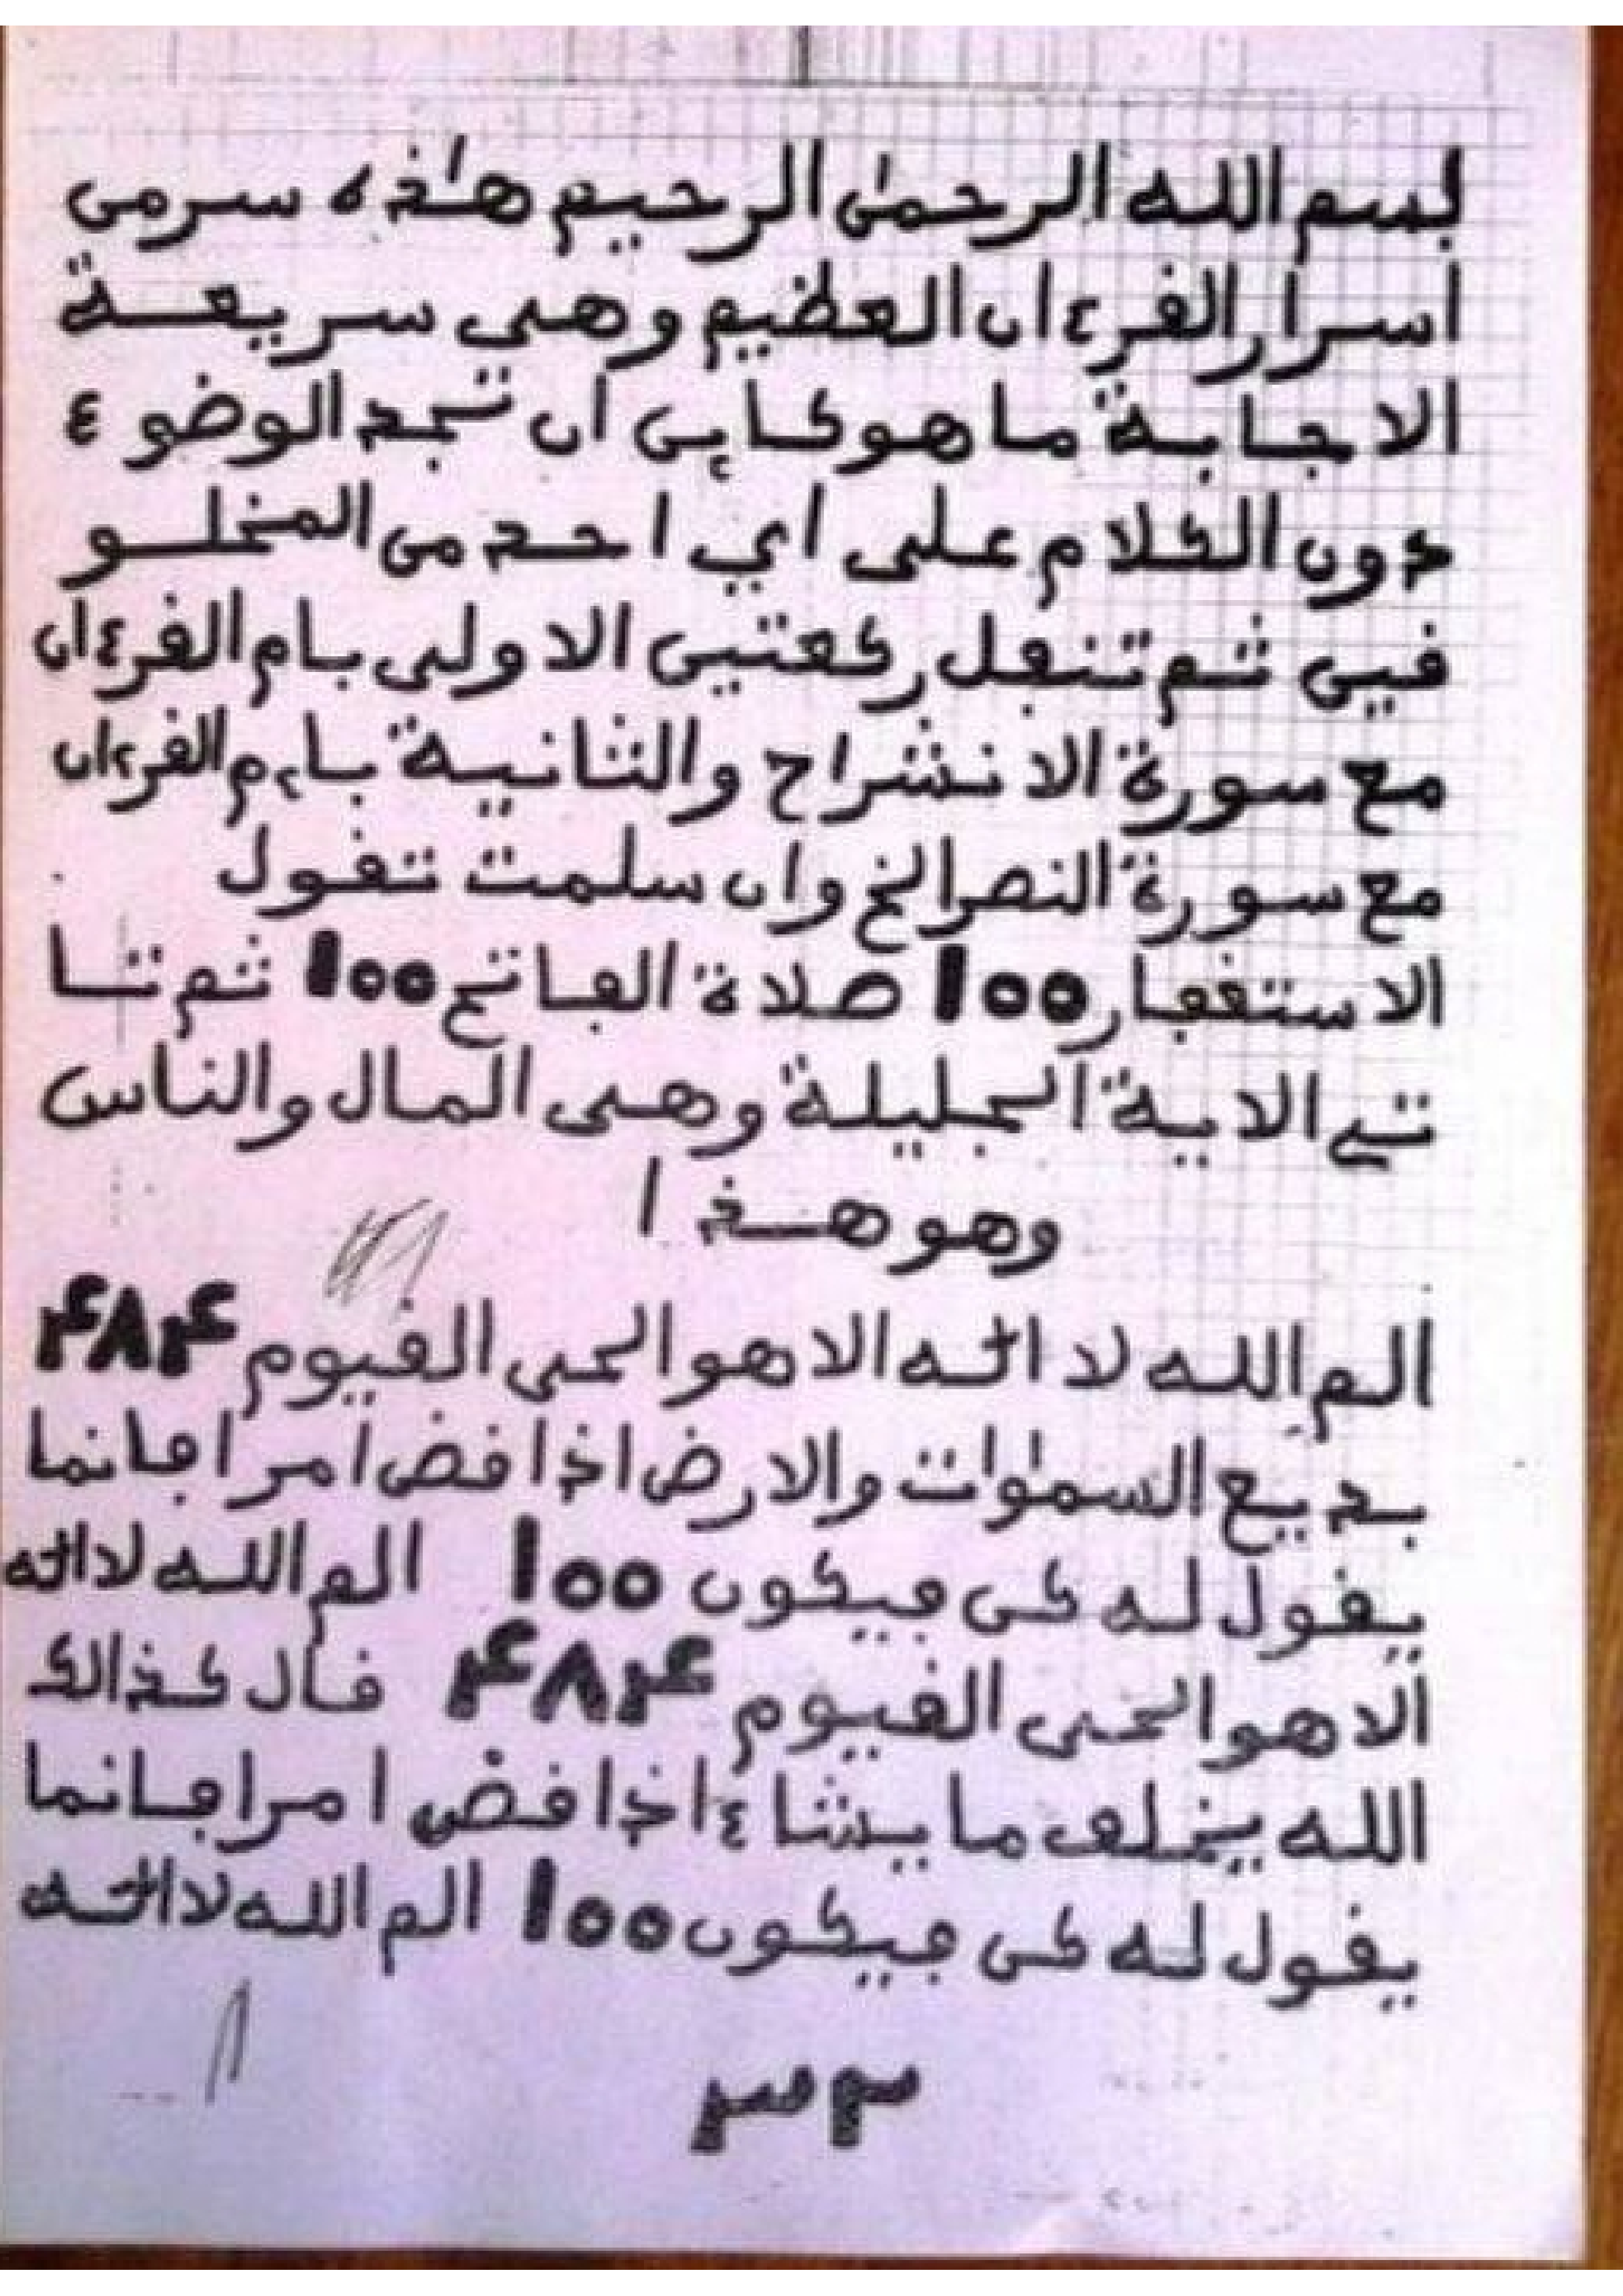 بسم الله الرحمٰن الرحيم هٰذه سر من
اسرار الفرءان العظيم وهي سريعة
الاجابة ما هو كاين ان تجد الوضوء
دون الكلام على اي احد من المخلو
فين ثم تنفل ركعتين الاولى بام الفرءان
مع سورة الانشراح والثانية بام الفرءان
مع سورة النصر الخ وان سلمت تفول
الاستغفار 100 صلاة الفاتح 100 ثم تا
تي الاية الجليلة وهي المال والناس
وهو هذا
الم الله لا اله الا هو الحي الفيوم ۴۸۴
بديع السمٰوٰت والارض اذا فضى امرا فانما
يفول له كن فيكون 100 الم الله لا اله
الا هو الحي الفيوم ۴۸۴ فال كذالك
الله يخلف ما يشاء اذا فضى امرا فانما
يفول له كن فيكون 100 الم الله لا اله